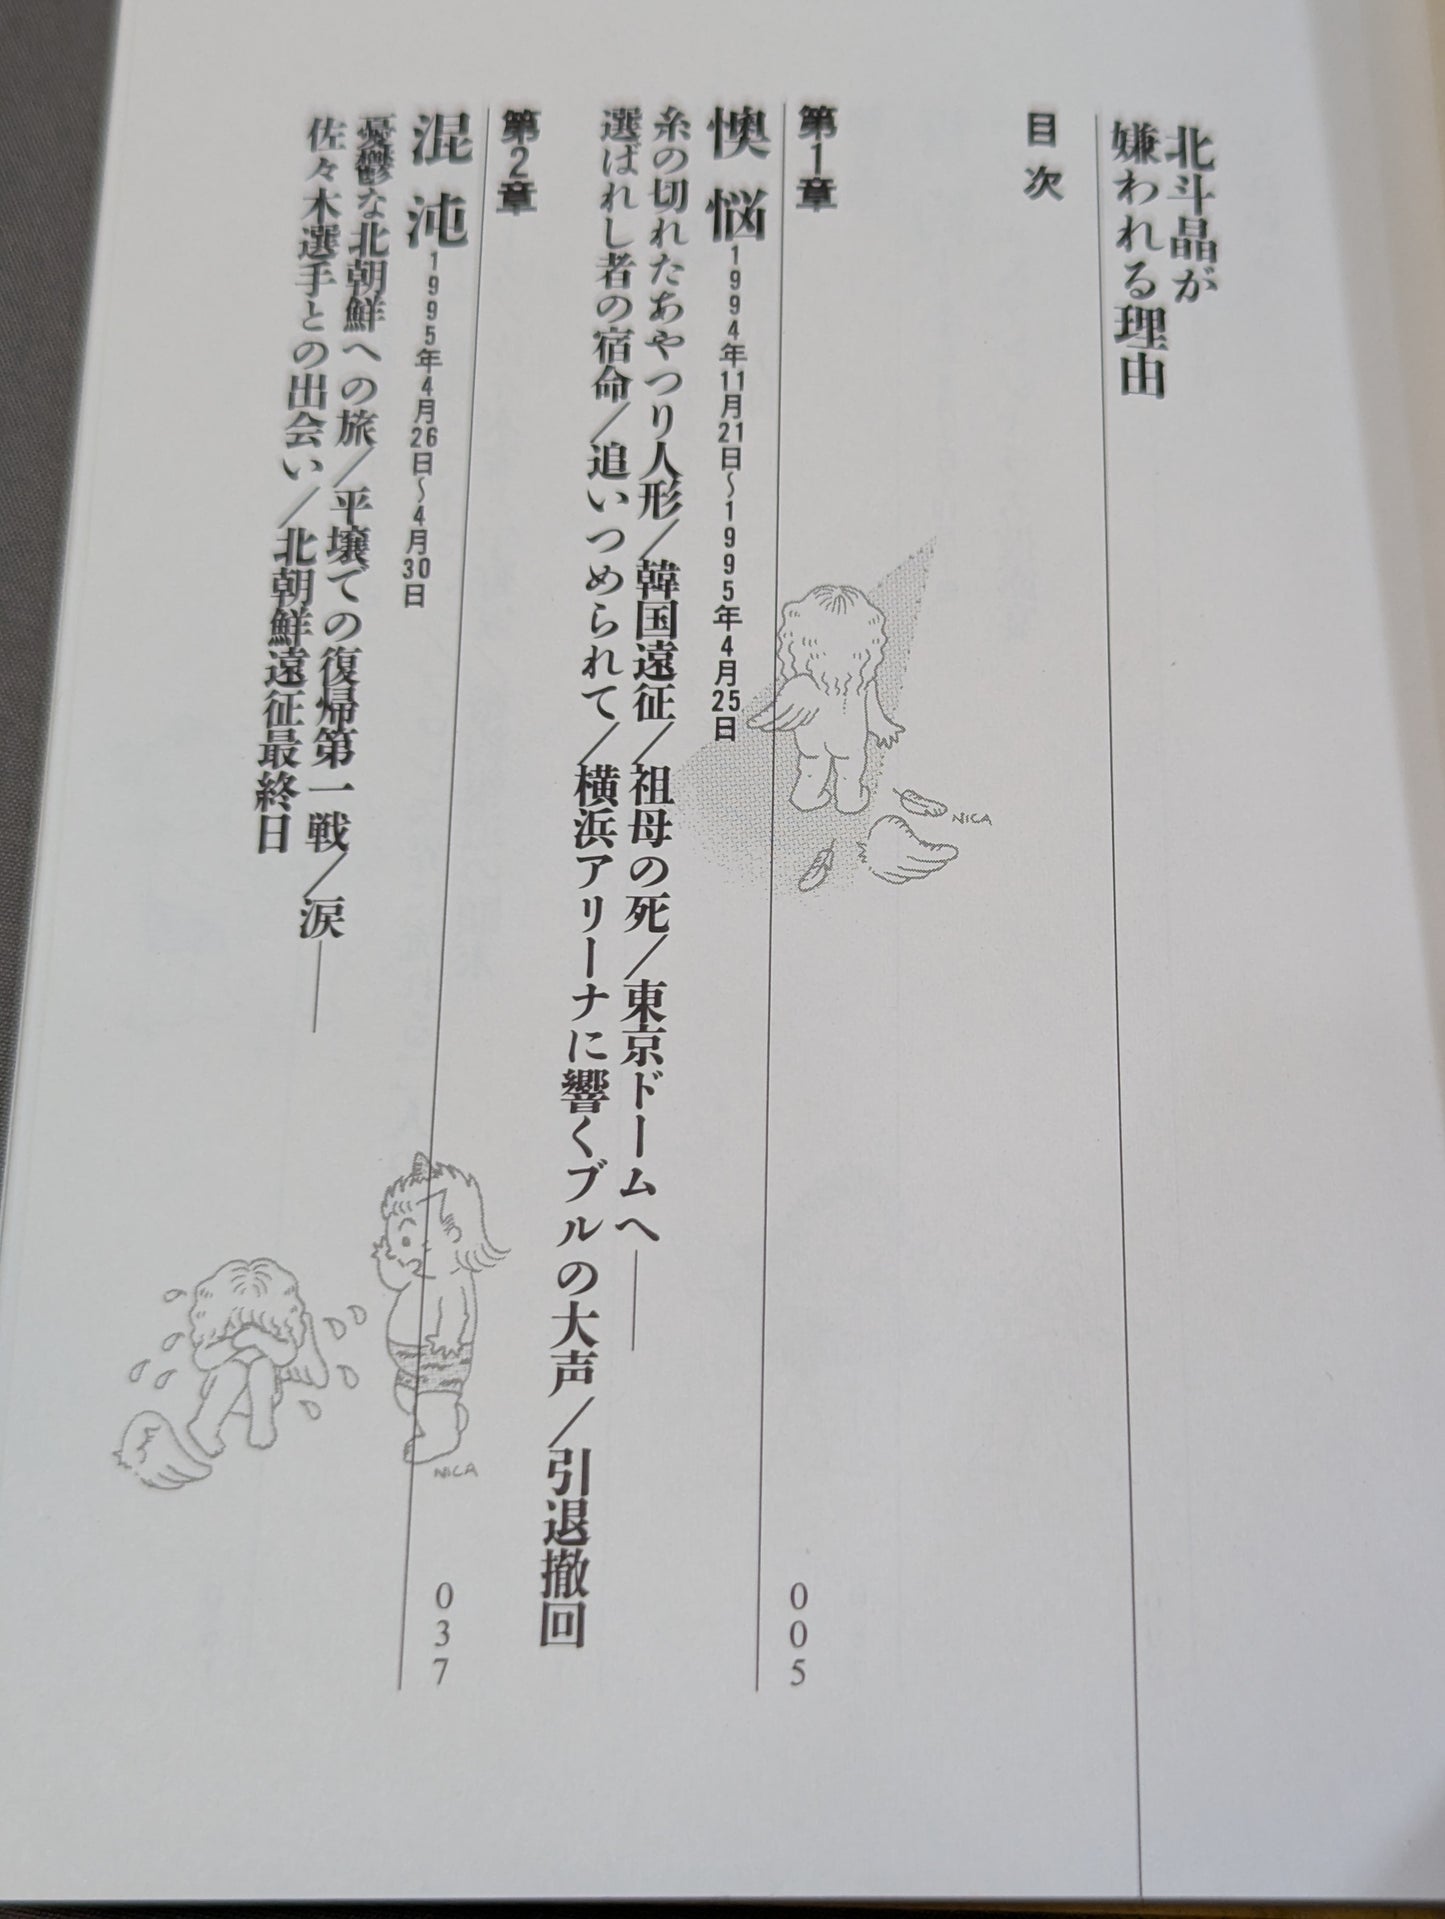 北斗晶が
嫌われる理由
目次
第1章
懊悩 1994年11月21日～1995年4月25日
005
糸の切れたあやつり人形／韓国遠征／祖母の死／東京ドームへ――
選ばれし者の宿命／追いつめられて／横浜アリーナに響くブルの大声／引退撤回
NICA
第2章
混沌 1995年4月26日～4月30日
037
憂鬱な北朝鮮への旅／平壌での復帰第一戦／涙――
佐々木選手との出会い／北朝鮮遠征最終日
NICA